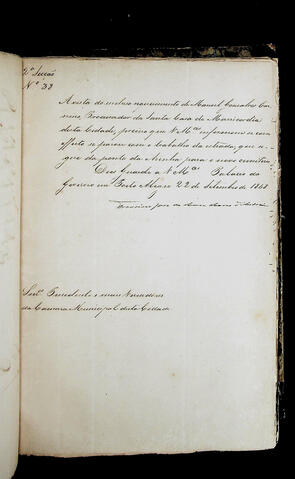 2ª Secção
Nº 32
Á vista do incluso requerimento de Manoel Gonsalves Car-
neiro, Procurador da Santa Casa da Misericordia
desta Cidade, preciso que VMces informem se com
effeito se parou com o trabalho da estrada, que se-
gue da ponte da Azenha para o novo cemiterio
Deos Guarde a VMces Palacio do
Governo em Porto Alegre 22 de Setembro de 1848
Senres Presidente e mais Vereadores
da Camara Municipal desta Cidade